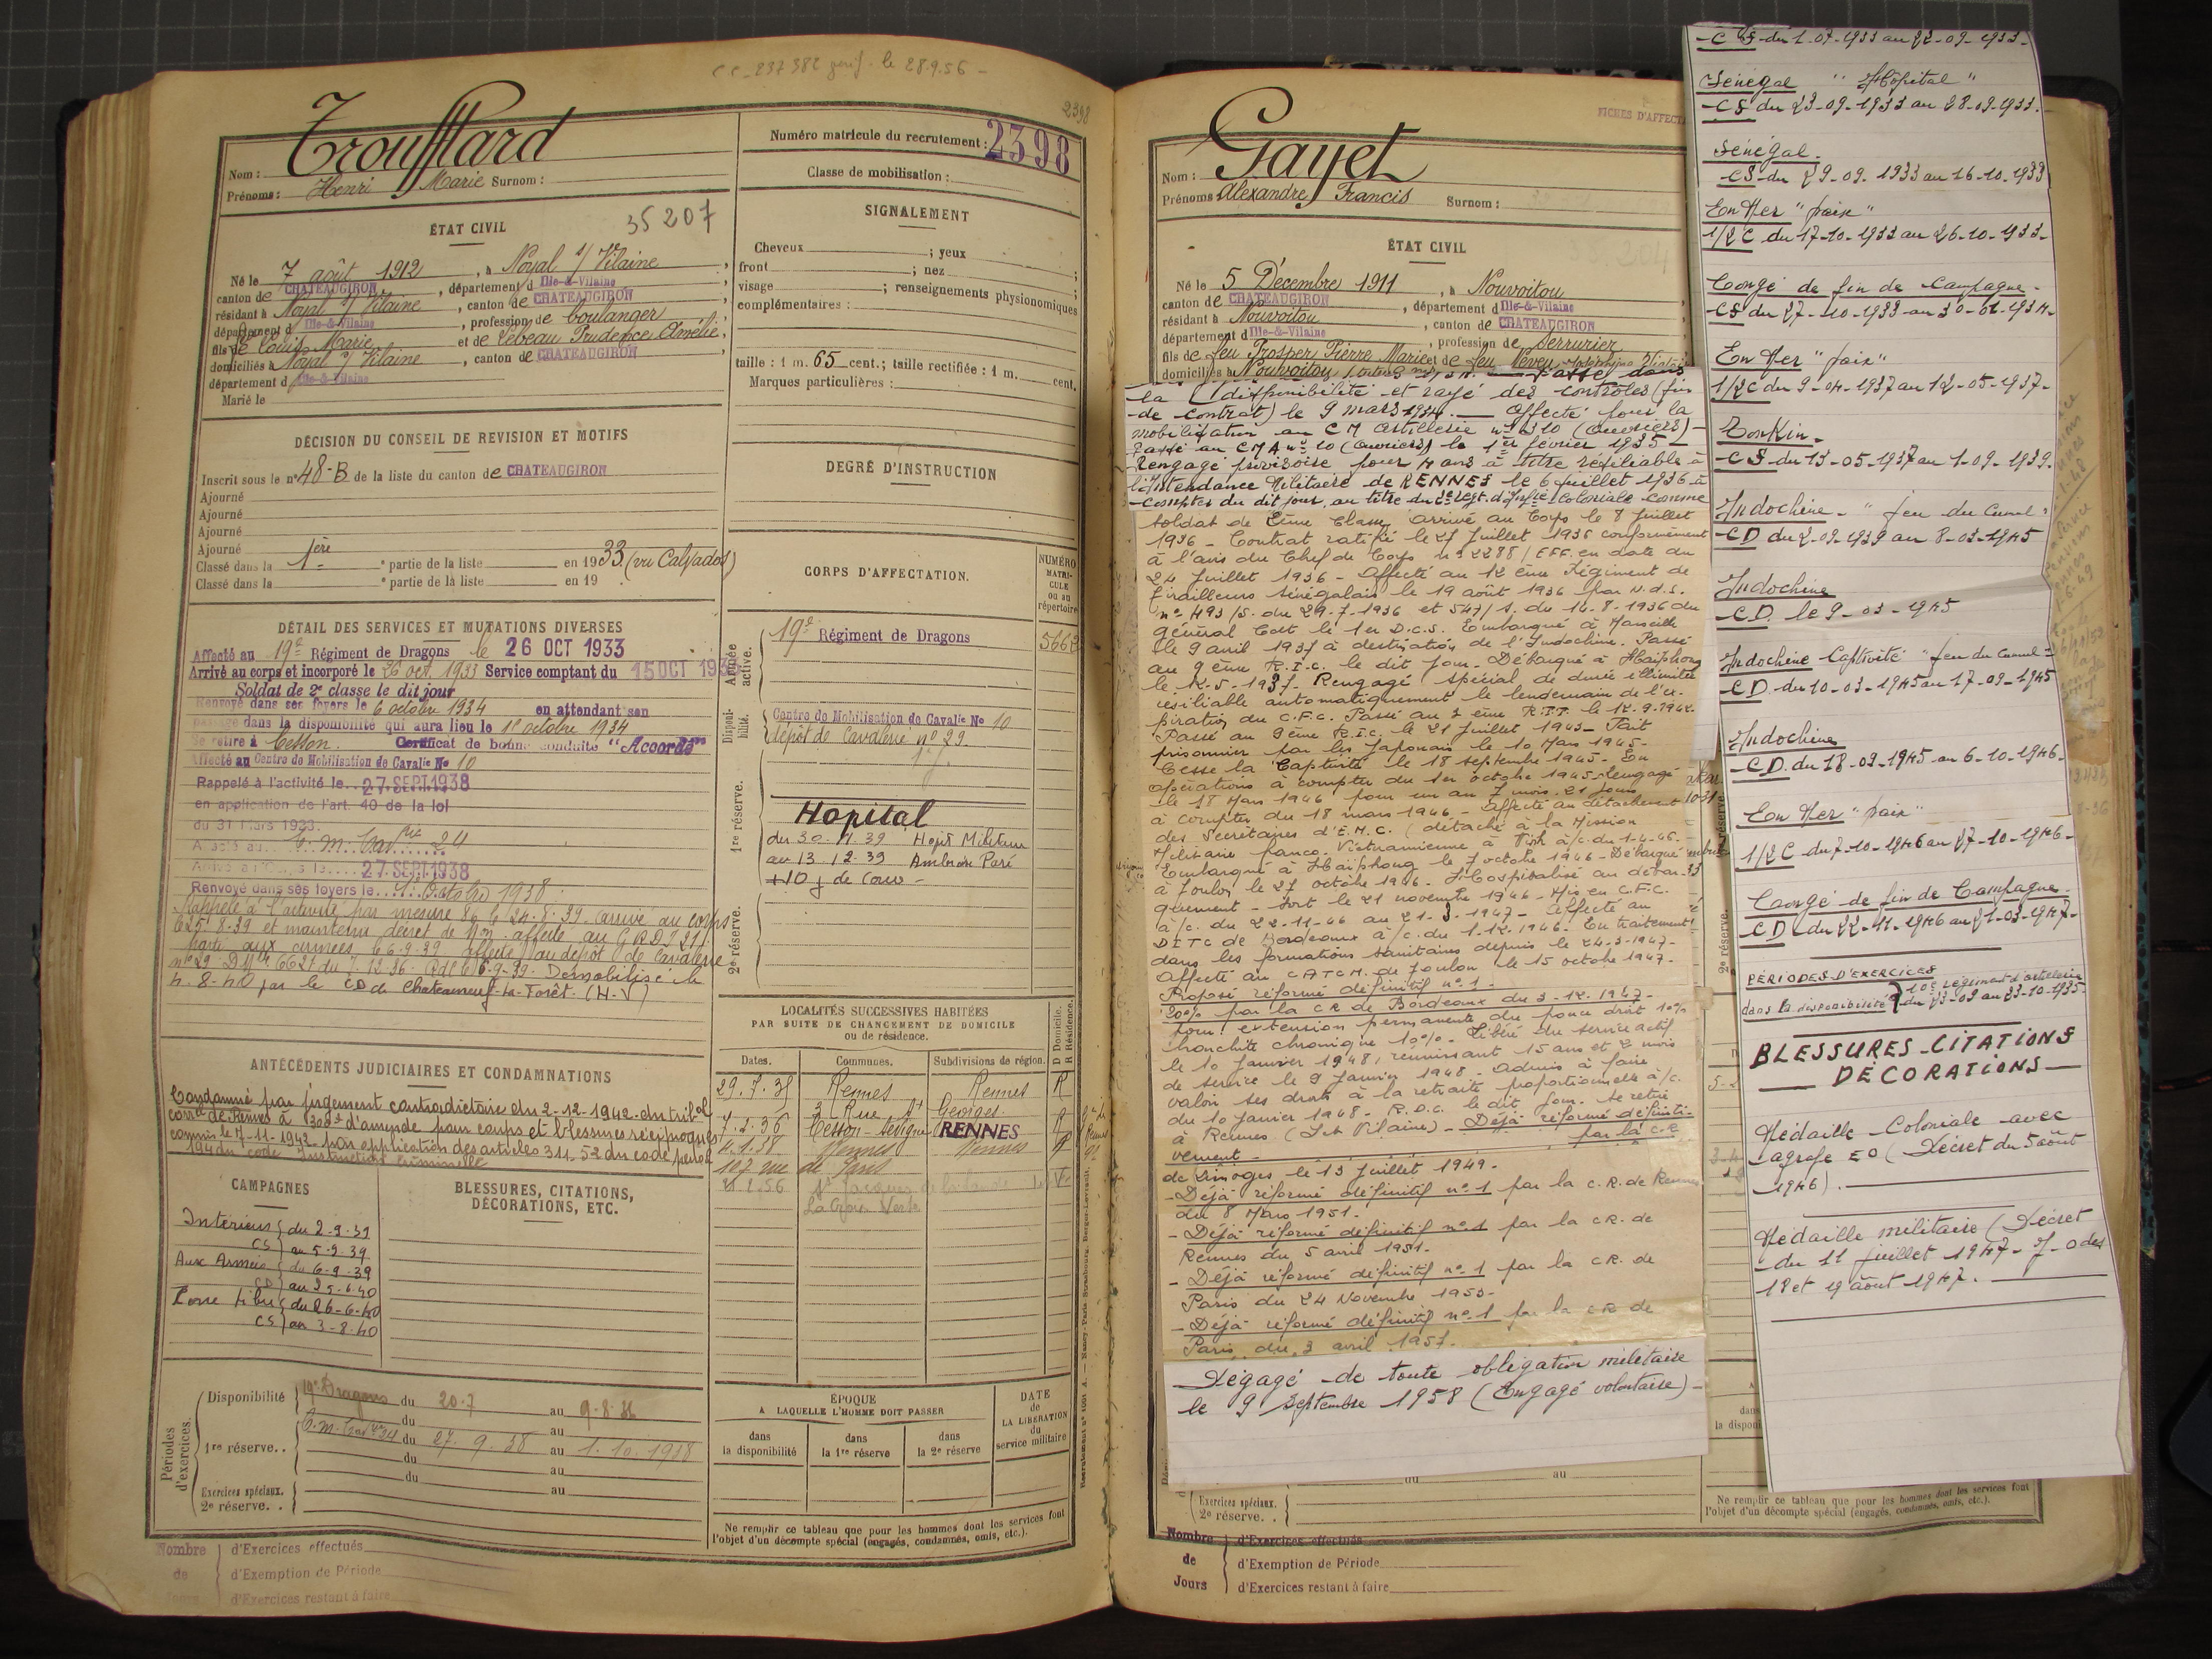 CC_237382 le 28.9.56 -
2398
Troufflard
Nom :
Prénoms : Henri Marie Surnom :
Numéro matricule du recrutement : 2398
Classe de mobilisation :
ÉTAT CIVIL
35207
Né le 7 août 1912, à Noyal s/ Vilaine
canton de CHATEAUGIRON, département d Ille-&-Vilaine
résidant à Noyal s/ Vilaine, canton de CHATEAUGIRON
département d Ille-&-Vilaine, profession de boulanger
fils de Louis Marie et de Lebeau Prudence Amélie
domiciliés à Noyal s/ Vilaine, canton de CHATEAUGIRON
département d Ille-&-Vilaine
Marié le
DÉCISION DU CONSEIL DE REVISION ET MOTIFS
Inscrit sous le n° 48-B de la liste du canton de CHATEAUGIRON
Ajourné
Ajourné
Ajourné
Ajourné
Classé dans la 1ère partie de la liste en 1933 (vu Calvados)
Classé dans la partie de la liste en 19
DÉTAIL DES SERVICES ET MUTATIONS DIVERSES
Affecté au 19e Régiment de Dragons le 26 OCT 1933
Arrivé au corps et incorporé le 26 oct. 1933 Service comptant du 15 OCT 193
Soldat de 2e classe le dit jour
Renvoyé dans ses foyers le 6 octobre 1934 en attendant son
passage dans la disponibilité qui aura lieu le 1er octobre 1934
Se retire à Cesson. Certificat de bonne conduite "Accordé"
Affecté au Centre de Mobilisation de Cavalie No 10
Rappelé à l'activité le 27 SEPT 1938
en application de l'art. 40 de la loi
du 31 Mars 1923.
27 SEPT 1938
Renvoyé dans ses foyers le 1er Octobre 1938
Rappelé à l'activité par mesure le 24-8-39 arrivé au corps
le 25-8-39 et maintenu décret de Mon. affecté au G R D I 21
parti aux armées le 6-9-39 affecté au dépôt de cavalerie
n° 29 Démobilisé le
4-8-40 par le CD de Chateauneuf-la-Forêt. (H-V)
ANTÉCÉDENTS JUDICIAIRES ET CONDAMNATIONS
Condamné par jugement contradictoire du 2-12-1942 du tribal
correl de Rennes à d'amende pour coups et blessures réciproques
commis le 7-11-1942 par application des articles 311-52 du code pénal
194 du code Instruction Criminelle
CAMPAGNES
Intérieur du 2-9-39
CS au 5-9-39
Aux Armées du 6-9-39
CD au 25-6-40
Zone Libre du 26-6-40
CS au 3-8-40
BLESSURES, CITATIONS,
DÉCORATIONS, ETC.
Périodes d'exercices.
Disponibilité 19e Dragons du 20-7 au 9-8-36
du au
1re réserve. du 27.9.38 au 1.10.1938
du au
du au
Exercices spéciaux.
2e réserve.
Nombre de Jours
d'Exercices effectués
d'Exemption de Période
d'Exercices restant à faire
SIGNALEMENT
Cheveux ; yeux
front ; nez
visage ; renseignements physionomiques
complémentaires :
taille : 1 m. 65 cent.; taille rectifiée : 1 m. cent.
Marques particulières :
DEGRÉ D'INSTRUCTION
CORPS D'AFFECTATION.
NUMÉRO MATRICULE ou au répertoire
Armée active.
19e Régiment de Dragons
Disponibilité.
Centre de Mobilisation de Cavalie No 10
dépôt de Cavalerie n° 29
1re réserve.
Hopital
du 30-11-39 Hopit Militaire
au 13-12-39 Ambroise Paré
+10 j de Conv -
2e réserve.
LOCALITÉS SUCCESSIVES HABITÉES
PAR SUITE DE CHANGEMENT DE DOMICILE
ou de résidence.
Dates. Communes. Subdivisions de région. D Domicile. R Résidence.
29.7.35 Rennes Rennes R
3 Rue St Georges
7.2.36 Cesson-Sévigné RENNES R
4.1.38 Rennes Rennes
107 rue de Paris
St Jacques de la Lande
ÉPOQUE
A LAQUELLE L'HOMME DOIT PASSER
DATE de LA LIBÉRATION du service militaire
dans la disponibilité
dans la 1re réserve
dans la 2e réserve
Ne remplir ce tableau que pour les hommes dont les services font
l'objet d'un décompte spécial (engagés, condamnés, omis, etc.).
FICHES D'AFFECT
Gayet
Nom :
Prénoms Alexandre Francis Surnom :
ÉTAT CIVIL
Né le 5 Décembre 1911, à Nouvoitou
canton de CHATEAUGIRON, département d Ille-&-Vilaine
résidant à Nouvoitou, canton de CHATEAUGIRON
département d Ille-&-Vilaine, profession de Serrurier
fils de feu Prosper Pierre Marie et de feu Neveu
domiciliés à Nouvoitou
Passé dans
la disponibilité et rayé des contrôles (fin
de contrat) le 9 mars 1934. — Affecté pour la
mobilisation au CM artillerie n° 310 (ouvriers) -
Passé au CMA n° 10 (ouvriers) le 1er février 1935 -
Rengagé provisoire pour 4 ans à titre résiliable à
l'Intendance Militaire de RENNES le 6 juillet 1936 à
compter du dit jour, au titre du 2e Regt. d'Infie Coloniale comme
soldat de 2ème Classe, arrivé au Corps le 8 juillet
1936 - Contrat ratifié le 27 juillet 1936 conformément
à l'avis du Chef de Corps n° 2288 / EFF. en date du
24 juillet 1936 - Affecté au 12ème Régiment de
Tirailleurs Sénégalais le 19 août 1936 par N.d.S.
n° 493/S. du 29-7-1936 et 547/S. du 14-8-1936 du
Général Cdt le 1er D.C.S. Embarqué à Marseille
le 9 avril 1937 à destination de l'Indochine. Passé
au 9ème R.I.C. le dit jour - Débarqué à Haïphong
le 12-5-1937. Rengagé spécial de durée illimitée
résiliable automatiquement le lendemain de l'ex-
piration du C.F.C. Passé au 3ème R.T.T. le 12.9.1942.
Passé au 9ème R.I.C. le 21 juillet 1943 - Fait
prisonnier par les Japonais le 10 Mars 1945.
Cesse la Captivité le 18 septembre 1945 - En
opérations à compter du 1er octobre 1945. Rengagé
le 18 Mars 1946 pour un an 7 mois 21 jours
à compter du 18 mars 1946. - Affecté au détachement
des Secrétaires d'E.M.C. (détaché à la Mission
Militaire Franco-Vietnamienne à Vinh à/c. du 1-4-46.
Embarqué à Haïphong le 7 octobre 1946 - Débarqué
à Toulon le 27 octobre 1946. Hospitalisé au débar-
quement - Sort le 21 novembre 1946 - Mis en C.F.C.
à/c. du 22-11-46 au 21-3-1947 - Affecté au
DITC de Bordeaux à/c. du 1-12-1946. En traitement
dans les formations sanitaires depuis le 24-3-1947 -
Affecté au CATCM. de Toulon le 15 octobre 1947 -
Proposé réformé définitif n° 1 -
20% par la CR de Bordeaux du 3-12-1947 -
pour : extension permanente du pouce droit 10%
bronchite chronique 10% - Libéré du service actif
le 10 janvier 1948, réunissant 15 ans et 2 mois
de service le 9 janvier 1948 - Admis à faire
valoir ses droits à la retraite proportionnelle à/c.
du 10 janvier 1948 - R.D.C. le dit jour. Se retire
à Rennes (I. et Vilaine) - Déjà réformé définiti-
vement - par la C.R
de Limoges le 13 juillet 1949.
- Déjà réformé définitif n° 1 par la C.R. de Rennes
du 8 Mars 1951.
- Déjà réformé définitif n° 1 par la CR. de
Rennes du 5 avril 1951.
- Déjà réformé définitif n° 1 par la CR. de
Paris du 24 Novembre 1953.
- Déjà réformé définitif n° 1 par la CR de
Paris du 3 avril 1957.
Dégagé de toute obligation militaire
le 9 septembre 1958 (Engagé volontaire) -
Exercices spéciaux.
2e réserve.
Nombre de Jours
d'Exercices effectués
d'Exemption de Période
d'Exercices restant à faire
- CS du 1-07-1933 au 22-09-1933 -
Sénégal " Hôpital "
- CS du 23-09-1933 au 28-09-1933.
Sénégal.
CS du 29-09-1933 au 16-10-1933
En Mer "paix"
1/2 C du 17-10-1933 au 26-10-1933 -
Congé de fin de Campagne -
CS du 27-10-1933 au 30-01-1934 -
En Mer "paix"
1/2 C du 9-04-1937 au 12-05-1937 -
Tonkin -
- CS du 13-05-1937 au 1-09-1939.
Indochine -
- CD du 2-09-1939 au 8-03-1945
Indochine
- CD. le 9-03-1945
Indochine Captivité
- CD. du 10-03-1945 au 17-09-1945
Indochine
- CD. du 18-09-1945 au 6-10-1946 -
En Mer "paix"
1/2 C du 7-10-1946 au 27-10-1946 -
Congé de fin de Campagne -
CD du 22-11-1946 au 21-03-1947 -
PÉRIODES D'EXERCICES
dans la disponibilité 10e régiment d'artillerie
du 23-09 au 23-10-1935
BLESSURES - CITATIONS
— DÉCORATIONS —
Médaille Coloniale avec
agrafe EO (Décret du 5 août
1946).
Médaille militaire (Décret
du 11 juillet 1947 - J-O des
18 et 19 août 1947.
Ne remplir ce tableau que pour les hommes dont les services font
l'objet d'un décompte spécial (engagés, condamnés, omis, etc.).